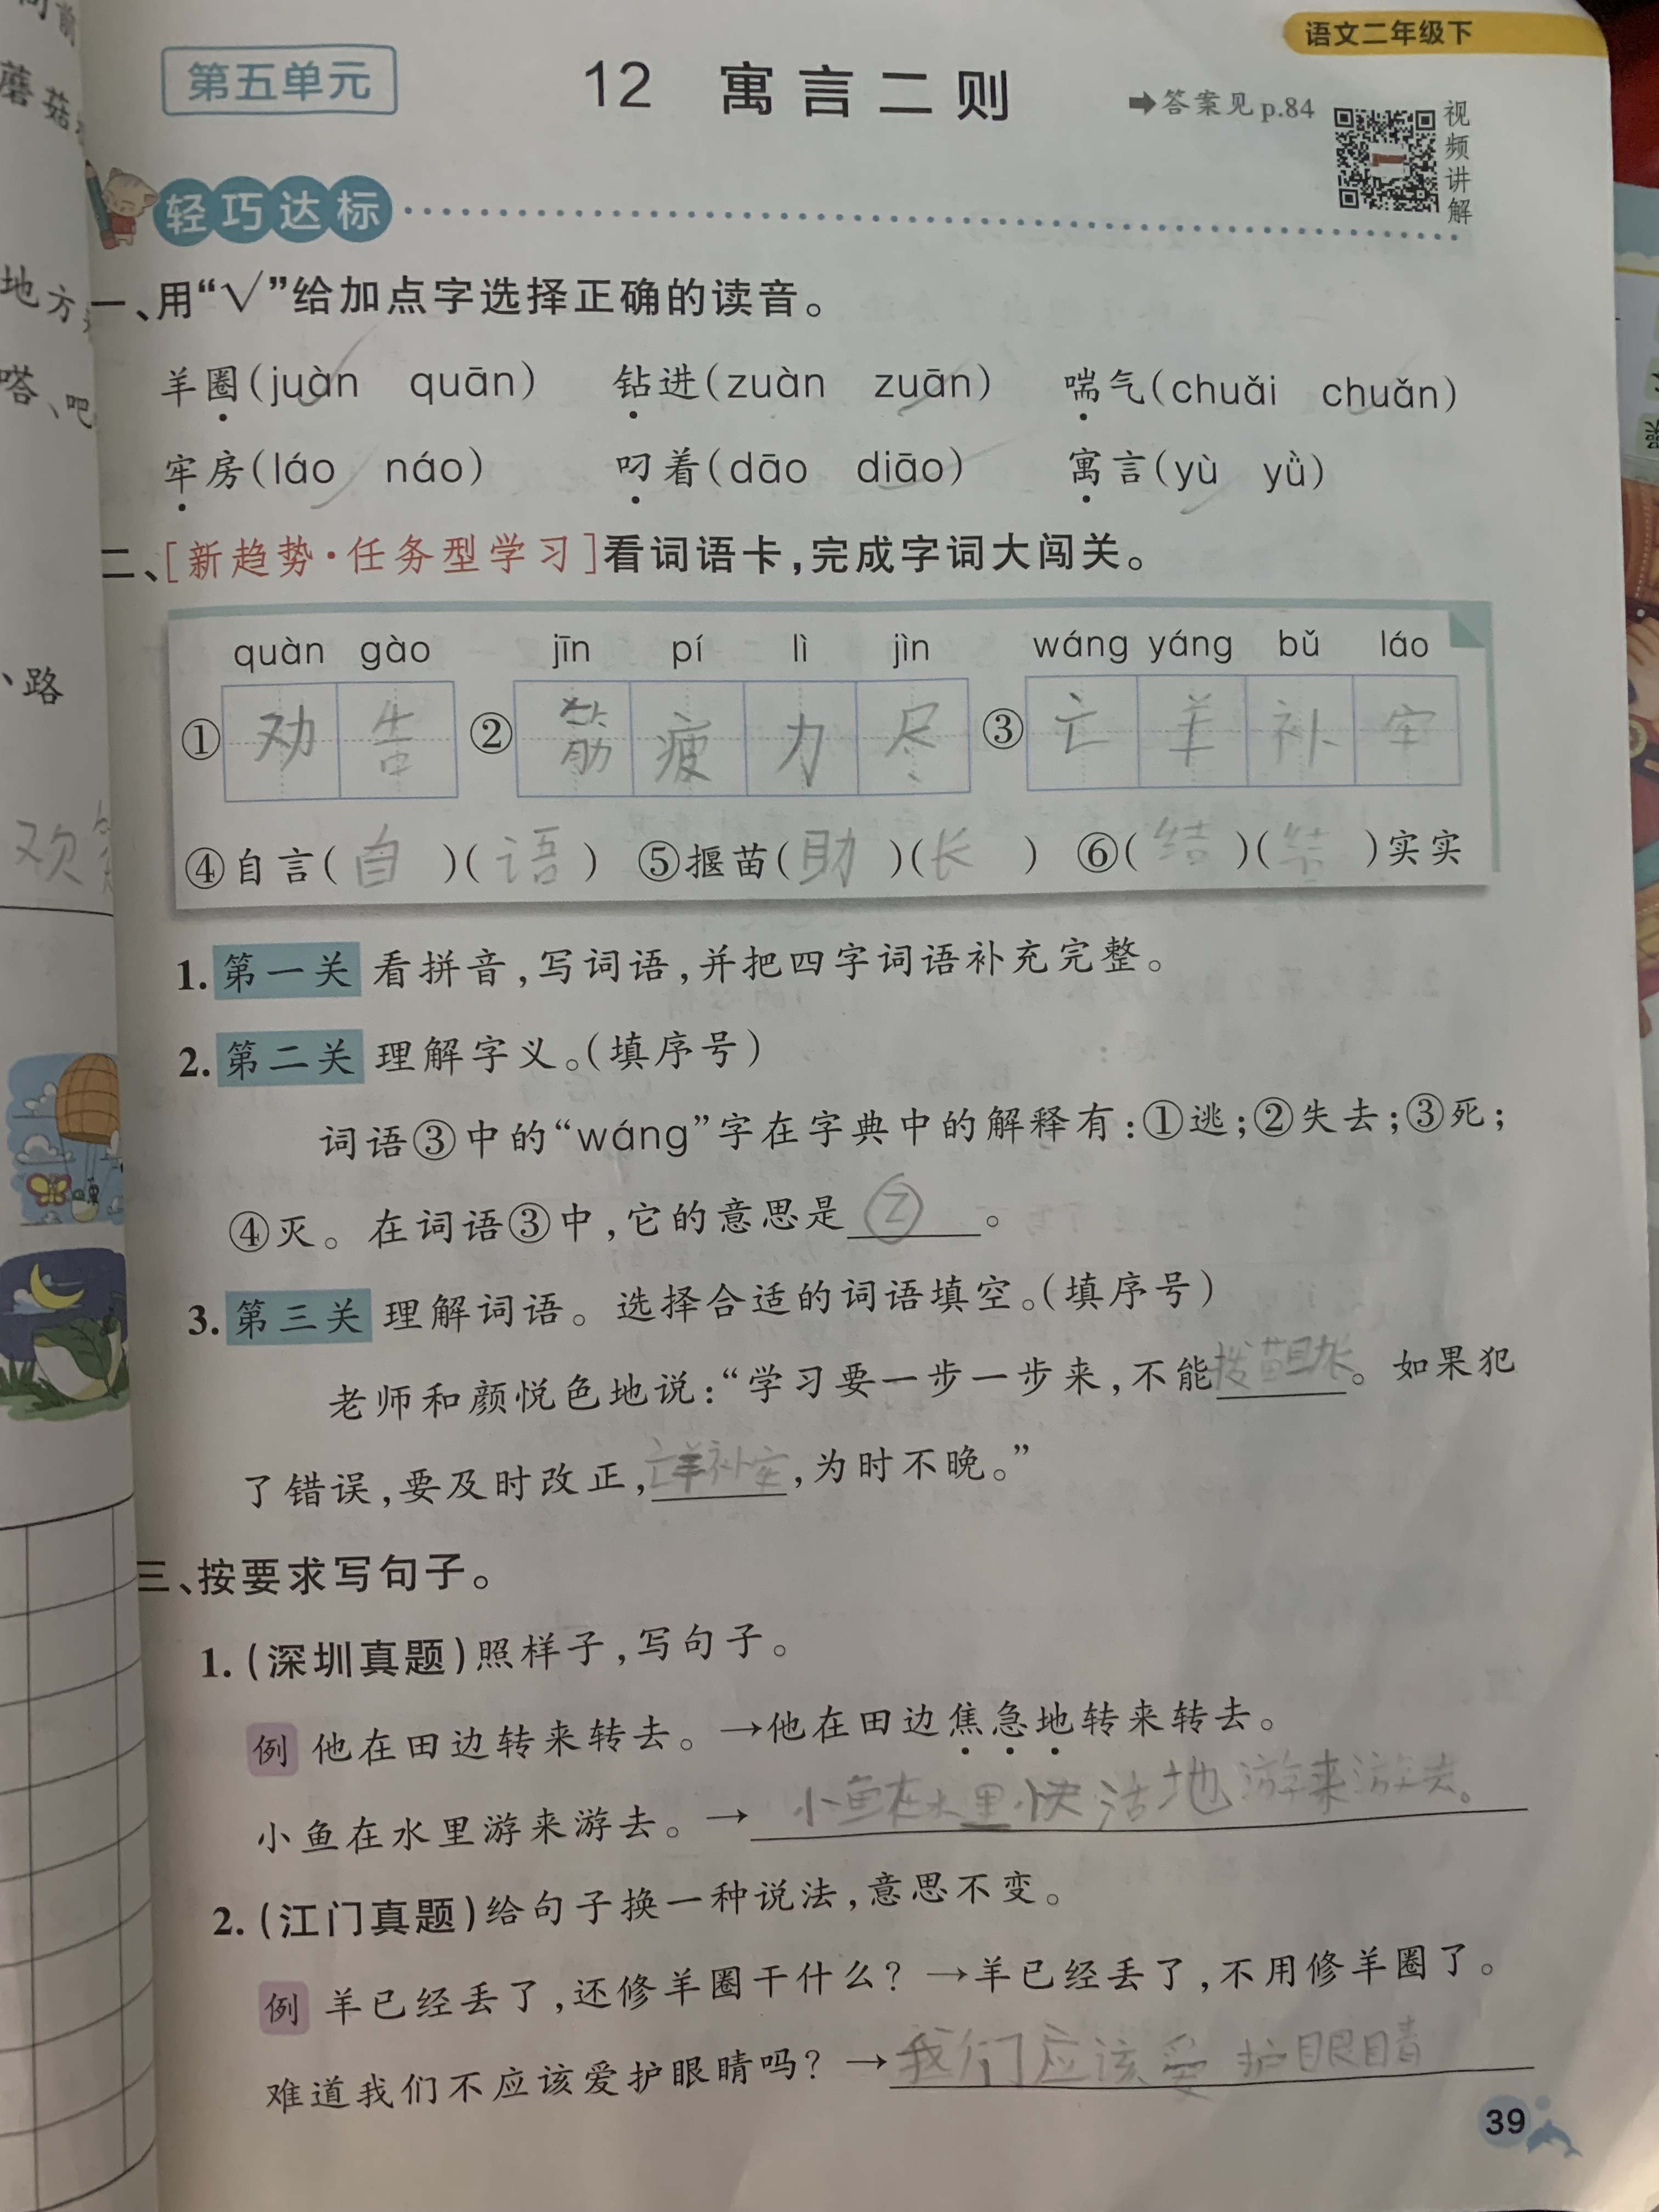 语文二年级下
第五单元
12 寓言二则
➡答案见p.84
视频讲解
轻巧达标
一、用“√”给加点字选择正确的读音。
羊圈(juàn quān) 钻进(zuàn zuān) 喘气(chuǎi chuǎn)
牢房(láo náo) 叼着(dāo diāo) 寓言(yù yǜ)
二、[新趋势·任务型学习]看词语卡,完成字词大闯关。
quàn gào jīn pí lì jìn wáng yáng bǔ láo
①劝告 ②筋疲力尽 ③亡羊补牢
④自言(自)(语) ⑤揠苗(助)(长) ⑥(结)(结)实实
1.第一关 看拼音,写词语,并把四字词语补充完整。
2.第二关 理解字义。(填序号)
词语③中的“wáng”字在字典中的解释有:①逃;②失去;③死;
④灭。在词语③中,它的意思是②。
3.第三关 理解词语。选择合适的词语填空。(填序号)
老师和颜悦色地说:“学习要一步一步来,不能拔苗助长。如果犯
了错误,要及时改正,亡羊补牢,为时不晚。”
三、按要求写句子。
1.(深圳真题)照样子,写句子。
例 他在田边转来转去。→他在田边焦急地转来转去。
小鱼在水里游来游去。→小鱼在水里快活地游来游去。
2.(江门真题)给句子换一种说法,意思不变。
例 羊已经丢了,还修羊圈干什么?→羊已经丢了,不用修羊圈了。
难道我们不应该爱护眼睛吗?→我们应该爱护眼睛
39
蘑菇
地方
嗒、吧
、路
欢